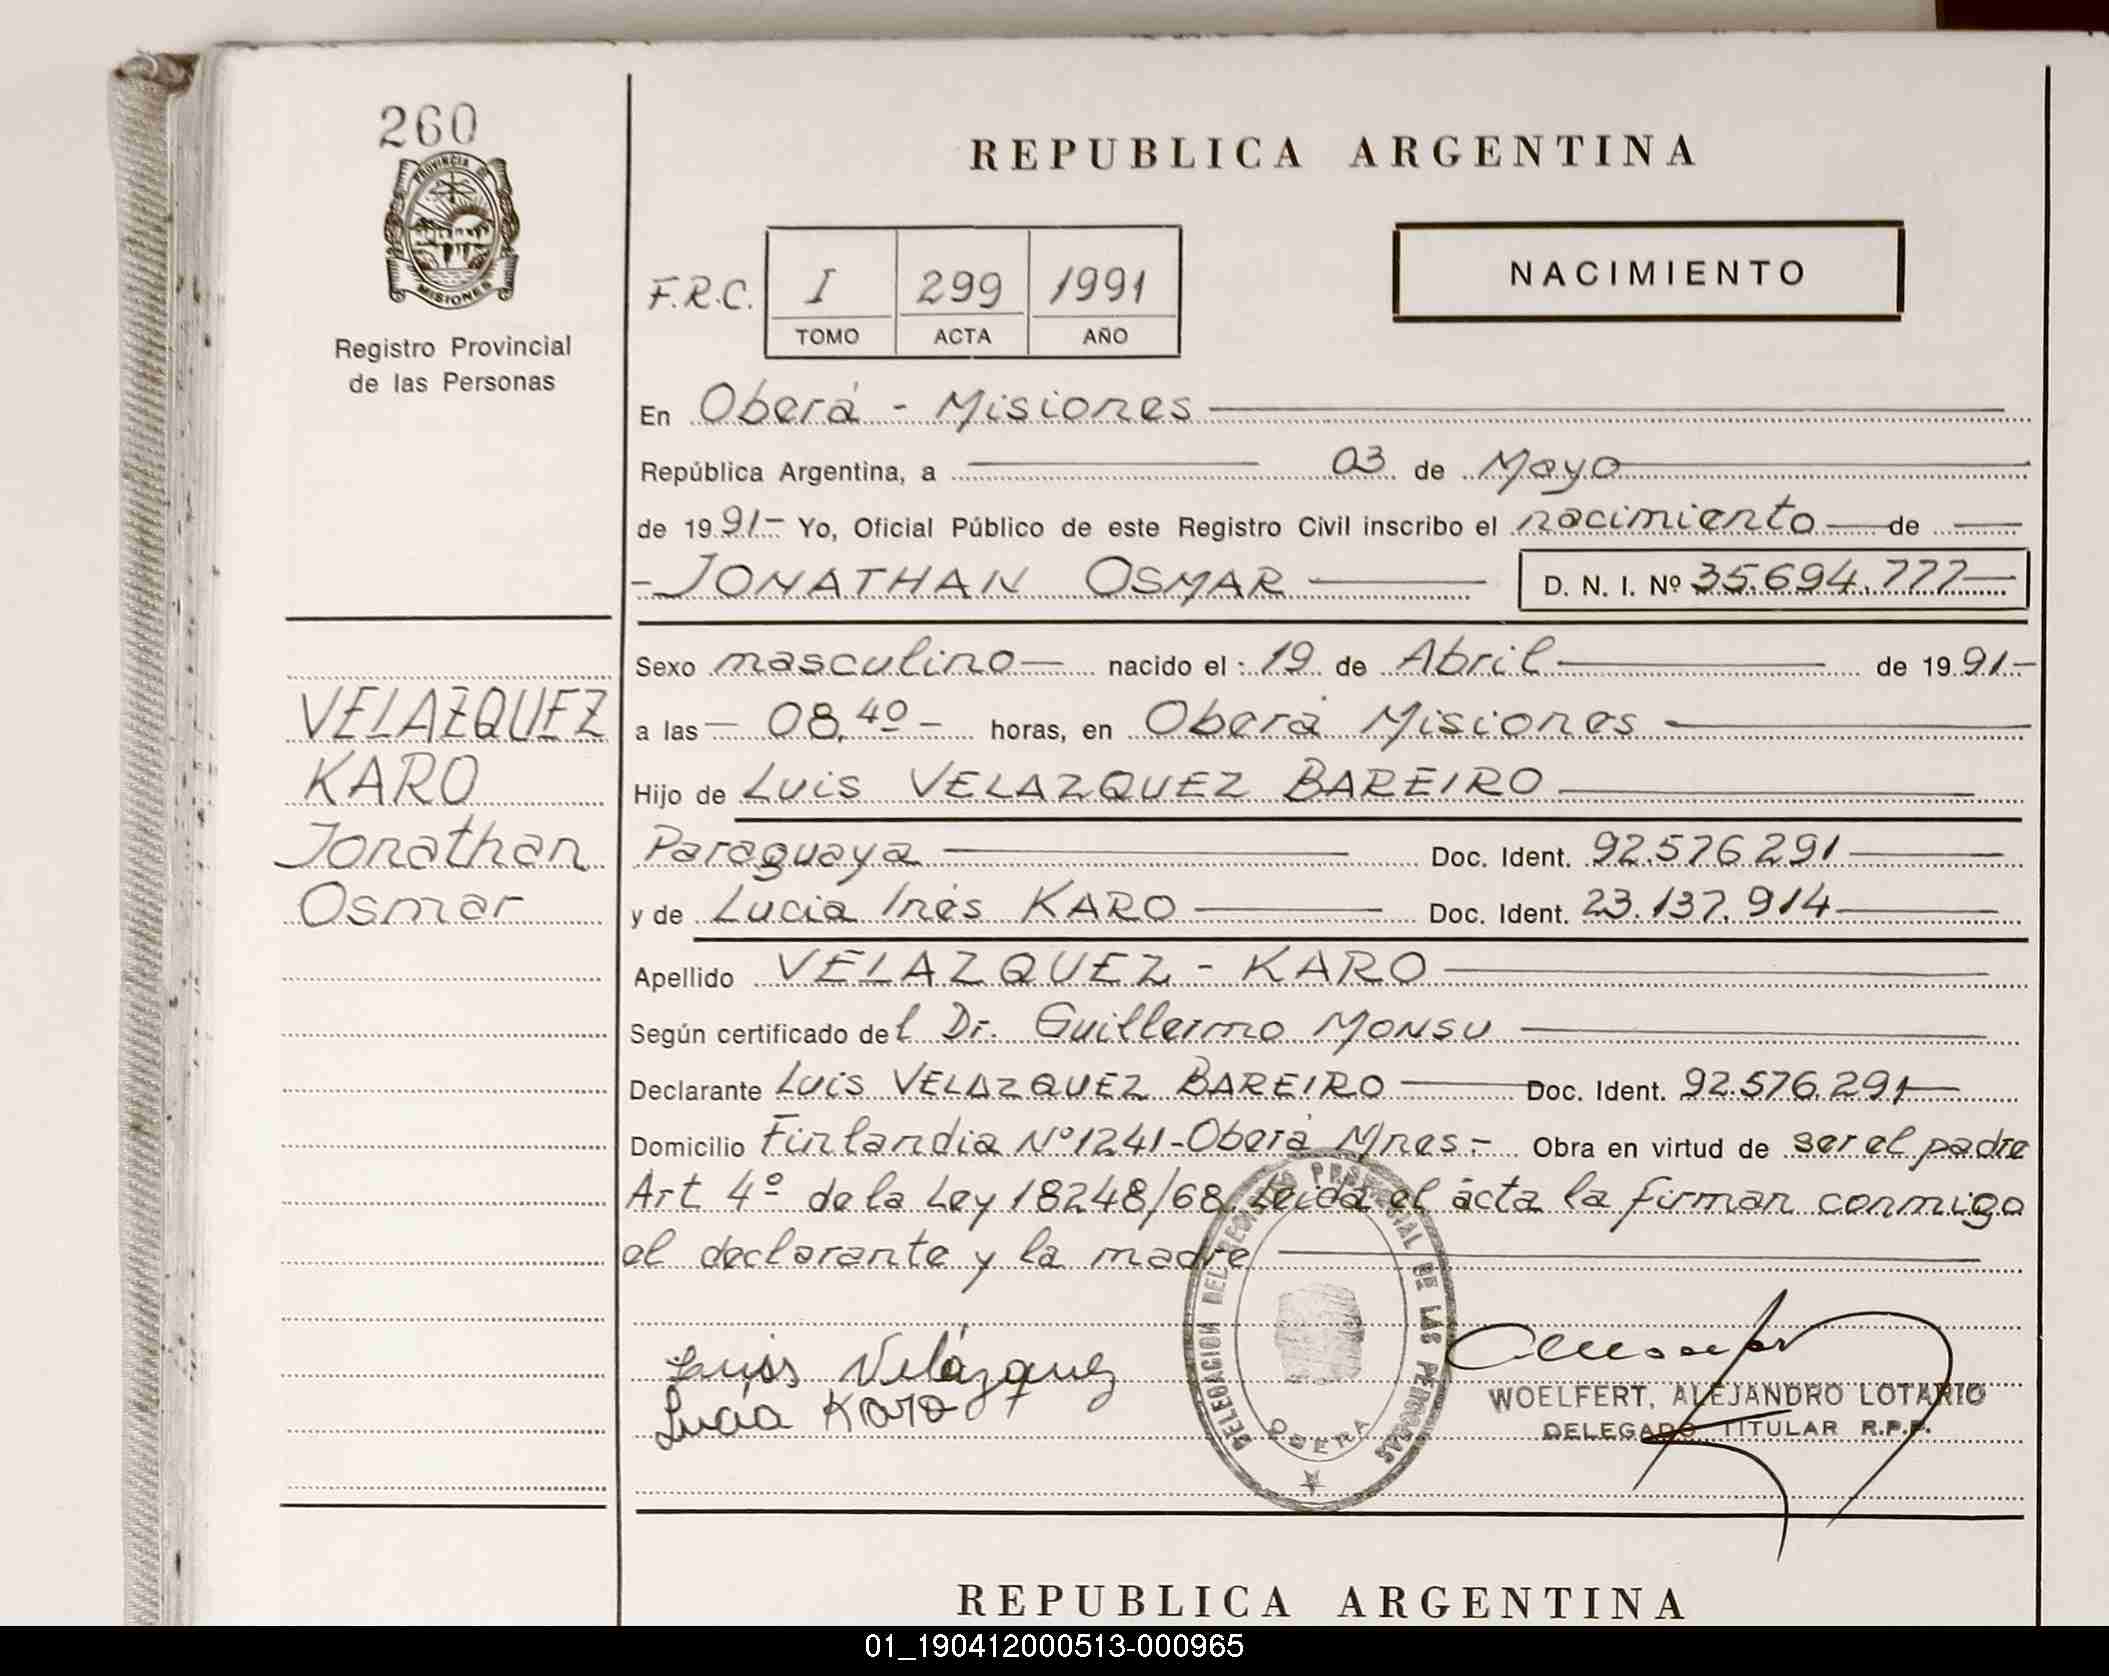 260
PROVINCIA DE
MISIONES
Registro Provincial
de las Personas
REPUBLICA ARGENTINA
NACIMIENTO
F.R.C. I 299 1991
TOMO ACTA AÑO
En Oberá - Misiones
República Argentina, a 03 de Mayo
de 1991- Yo, Oficial Público de este Registro Civil inscribo el nacimiento de
- JONATHAN OSMAR D. N. I. Nº 35.694.777
VELAZQUEZ
KARO
Jonathan
Osmar
Sexo masculino nacido el : 19 de Abril de 1991-
a las 08,40 - horas, en Oberá Misiones
Hijo de Luis VELAZQUEZ BAREIRO
Paraguaya Doc. Ident. 92.576.291
y de Lucia Inés KARO Doc. Ident. 23.137.914
Apellido VELAZQUEZ - KARO
Según certificado del Dr. Guillermo MONSU
Declarante Luis VELAZQUEZ BAREIRO Doc. Ident. 92.576.291
Domicilio Finlandia Nº1241-Oberá Mnes.- Obra en virtud de ser el padre
Art 4º de la Ley 18248/68. Leida el ácta la firman conmigo
el declarante y la madre
Luis Velázquez
Lucia Karo
DELEGACION DEL REGISTRO PROVINCIAL DE LAS PERSONAS
OBERA
WOELFERT, ALEJANDRO LOTARIO
DELEGADO TITULAR R.P.P.
REPUBLICA ARGENTINA
01_190412000513-000965